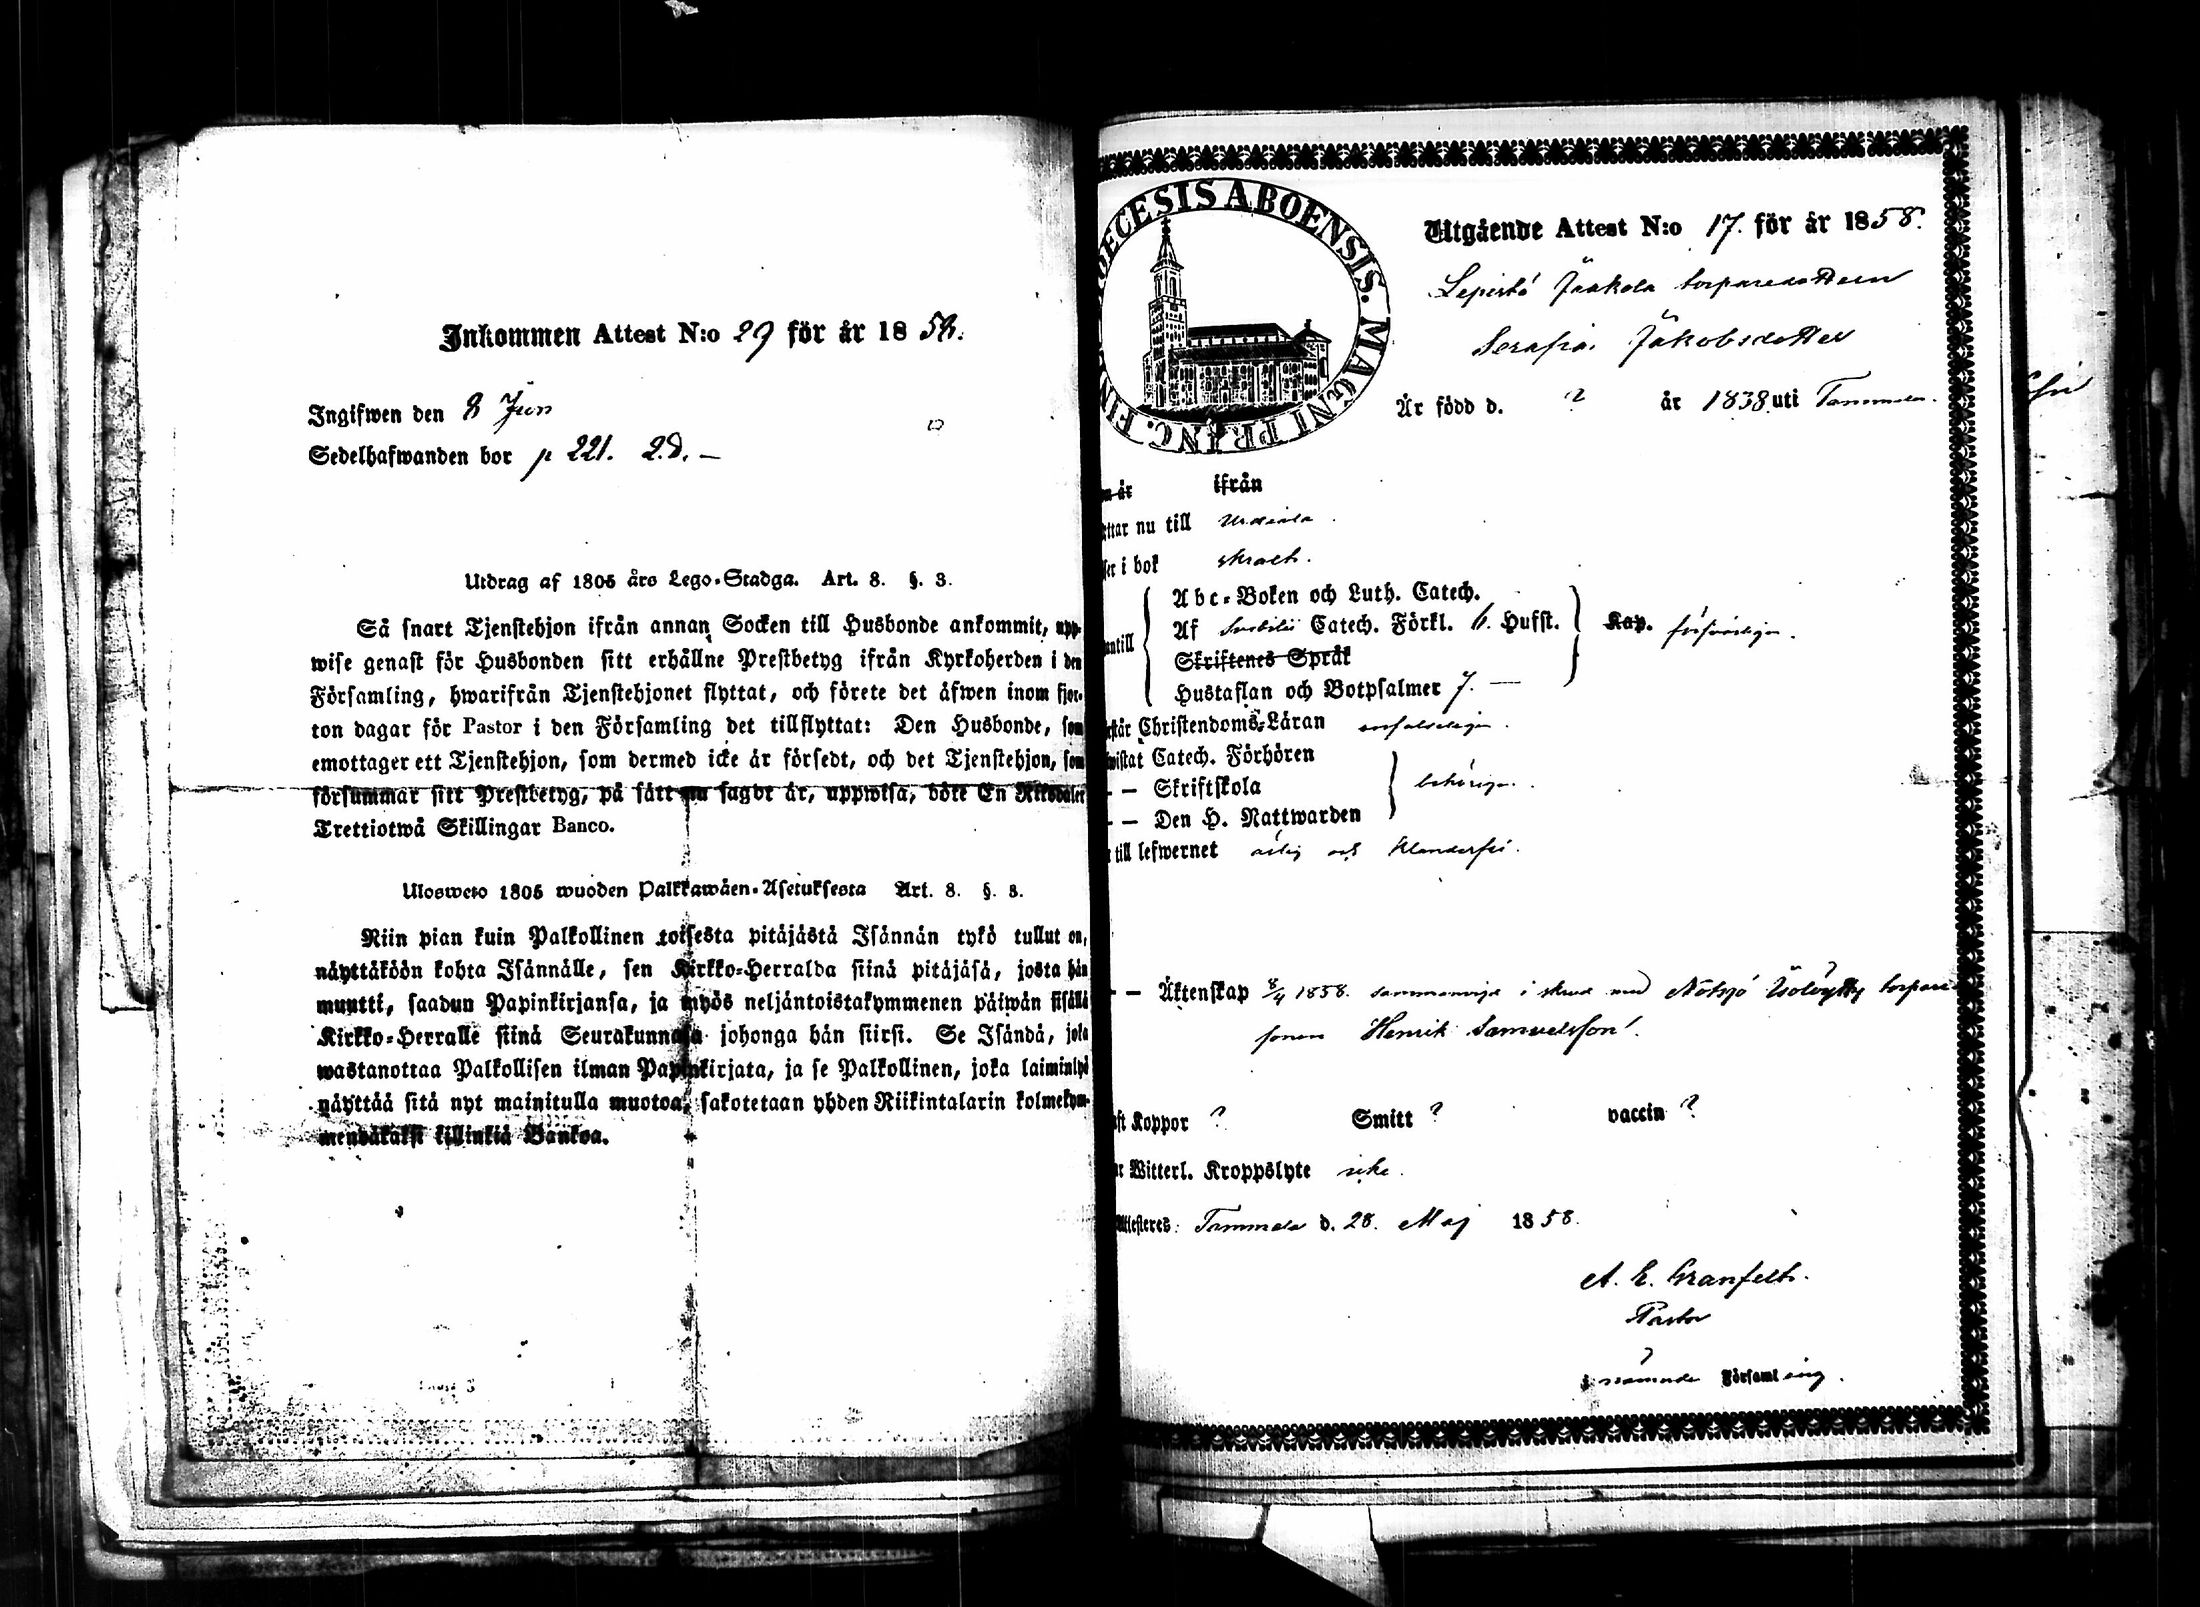 Inkommen Attest N:o 29 för år 1858.
Ingifwen den 8 Jun
Sedelhafwanden bor p 221. 2.d. –
Utdrag af 1805 års Lego-Stadga. Art. 8. §. 3.
Så snart Tjenstehjon ifrån annan Socken till Husbonde ankommit, upp-
wise genast för Husbonden sitt erhållne Prestbetyg ifrån Kyrkoherden i den
Församling, hwarifrån Tjenstehjonet flyttat, och förete det äfwen inom fjor-
ton dagar för Pastor i den Församling det tillflyttat: Den Husbonde, som
emottager ett Tjenstehjon, som dermed icke är försedt, och det Tjenstehjon, som
försummar sitt Prestbetyg, på sätt nu sagdt är, uppwisa, böte En Riksdaler
Trettiotwå Skillingar Banco.
Ulosweto 1805 wuoden Palkkawäen-Asetuksesta Art. 8. §. 3.
Niin pian kuin Palkollinen toisesta pitäjästä Isännän tykö tullut on,
näyttäköön kohta Isännälle, sen Kirkko-Herralda siinä pitäjäsä, josta hän
muutti, saadun Papinkirjansa, ja myös neljäntoistakymmenen päiwän sisällä
Kirkko-Herralle siinä Seurakunnasa johonga hän siirsi. Se Isändä, joka
wastanottaa Palkollisen ilman Papinkirjata, ja se Palkollinen, joka laiminlyö
näyttää sitä nyt mainitulla muotoa, sakotetaan yhden Riikintalarin kolmekym-
mendäkaksi killinkiä Bankoa.
DIOECESIS ABOENSIS. MAGNI PRINC. FINL
Utgående Attest N:o 17. för år 1858.
Lepistö Jaakola torparedottern
Serafia Jakobsdotter
Är född d. ? år 1838 uti Tammela.
är ifrån
ttar nu till Urdiala.
ser i bok swalt.
antill
Abc-Boken och Luth. Catech.
Af Catech. Förkl. 6. Hufst. Kap. försvarligen.
Skriftenes Språk
Hustaflan och Botpsalmer 7. –
rstår Christendoms-Läran enfaldeligen.
wistat Catech. Förhören
– – Skriftskola behörigen.
– – Den H. Nattwarden
till lefwernet ärlig och klanderfri.
– – Äktenskap 8/4 1858. sammanvigd i stånd med torpare
sonen Henrik Samuelsson.
ft Koppor ? Smitt ? vaccin ?
r Witterl. Kroppslyte icke.
Attesteres: Tammela d. 28. Maj 1858.
A. E. Granfelt.
Pastor
i nämnde Församling.